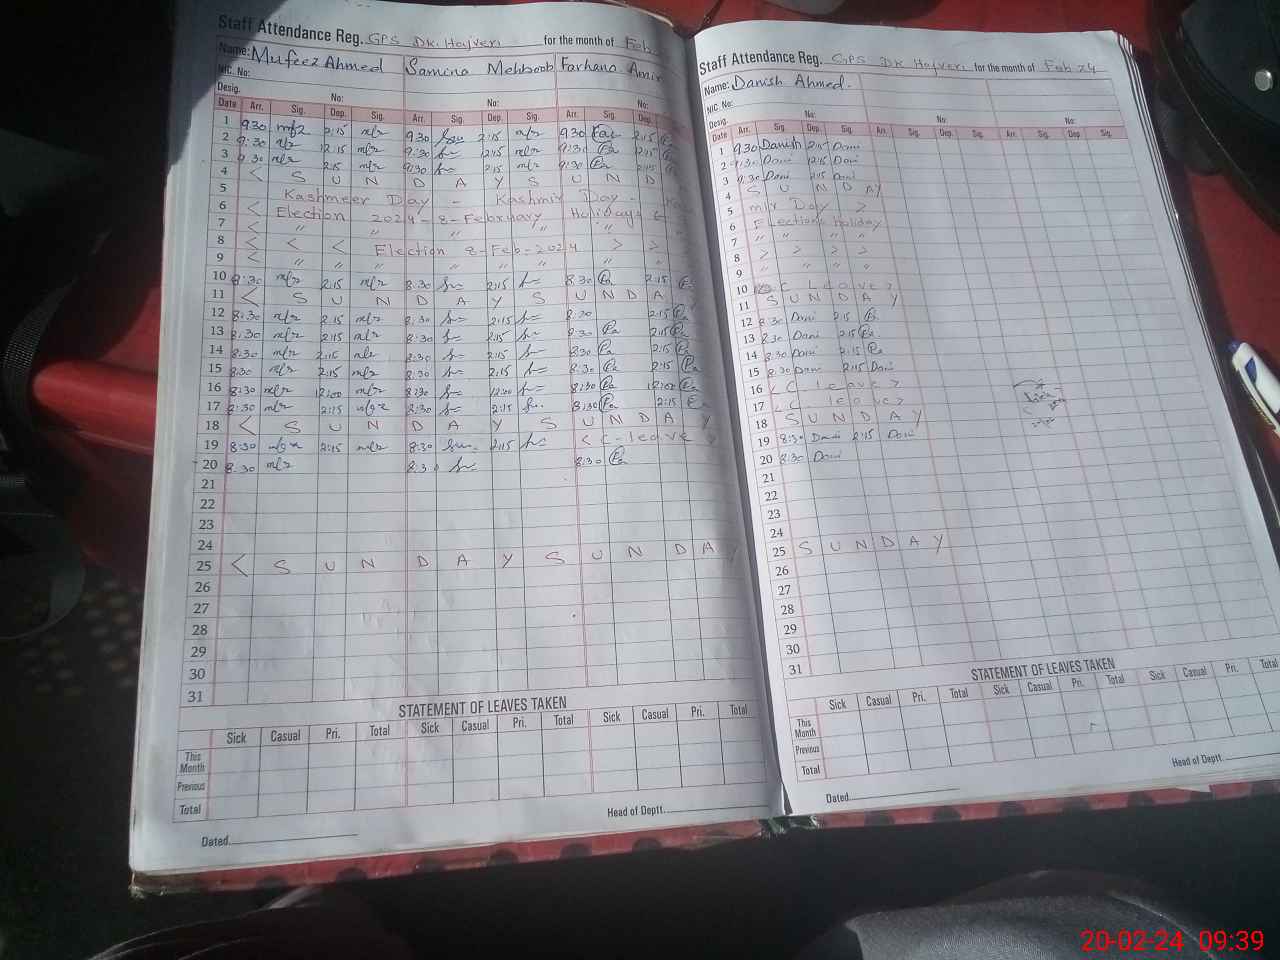 Staff Attendance Reg. GPS DK. Hajveri for the month of Feb
Name: Mufeez Ahmed Samina Mehboob Farhana Amir
NIC. No:
Desig. No: No: No:
Date Arr. Sig. Dep. Sig. Arr. Sig. Dep. Sig. Arr. Sig. Dep.
1 9:30 2:15 9:30 2:15 9:30 2:15
2 9:30 12:15 9:30 12:15 9:30 2:15
3 9:30 2:15 9:30 2:15 9:30 2:15
4 < S U N D A Y S U N D
5 Kashmeer Day - Kashmir Day -
6 < Election 2024 - 8 - February Holidays
7 < " " " " "
8 < < < Election 8-Feb-2024 > >
9 < " " " " " " "
10 8:30 2:15 8:30 2:15 8:30 2:15
11 < S U N D A Y S U N D A
12 8:30 2:15 8:30 2:15 8:30 2:15
13 8:30 2:15 8:30 2:15 8:30 2:15
14 8:30 2:15 8:30 2:15 8:30 2:15
15 8:30 2:15 8:30 2:15 8:30 2:15
16 8:30 12:00 8:30 12:00 8:30 12:00
17 8:30 2:15 8:30 2:15 8:30 2:15
18 < S U N D A Y S U N D A Y
19 8:30 2:15 8:30 2:15 < C - leave
20 8:30 8:30 8:30
21
22
23
24
25 < S U N D A Y S U N D A Y
26
27
28
29
30
31
STATEMENT OF LEAVES TAKEN
Sick Casual Pri. Total Sick Casual Pri. Total Sick Casual Pri. Total
This Month
Previous
Total
Head of Deptt.
Dated
Staff Attendance Reg. GPS DK Hajveri for the month of Feb 24
Name: Danish Ahmed.
NIC. No:
Desig. No: No: No:
Date Arr. Sig. Dep. Sig. Arr. Sig. Dep. Sig. Arr. Sig. Dep. Sig.
1 9:30 Danish 2:15 Dani
2 9:30 Dani 12:15 Dani
3 9:30 Dani 2:15 Dani
4 S U N D A Y
5 mir Day >
6 Elections holiday
7 " " " "
8 > > > >
9 " " " "
10 C Leave >
11 S U N D A Y
12 8:30 Dani 2:15
13 8:30 Dani 2:15
14 8:30 Dani 2:15
15 8:30 Dani 2:15 Dani
16 < C leave >
17 < C leave >
18 S U N D A Y
19 8:30 Dani 2:15 Dani
20 8:30 Dani
21
22
23
24
25 S U N D A Y
26
27
28
29
30
31
STATEMENT OF LEAVES TAKEN
Sick Casual Pri. Total Sick Casual Pri. Total Sick Casual Pri. Total
This Month
Previous
Total
Head of Deptt.
Dated
20-02-24 09:39